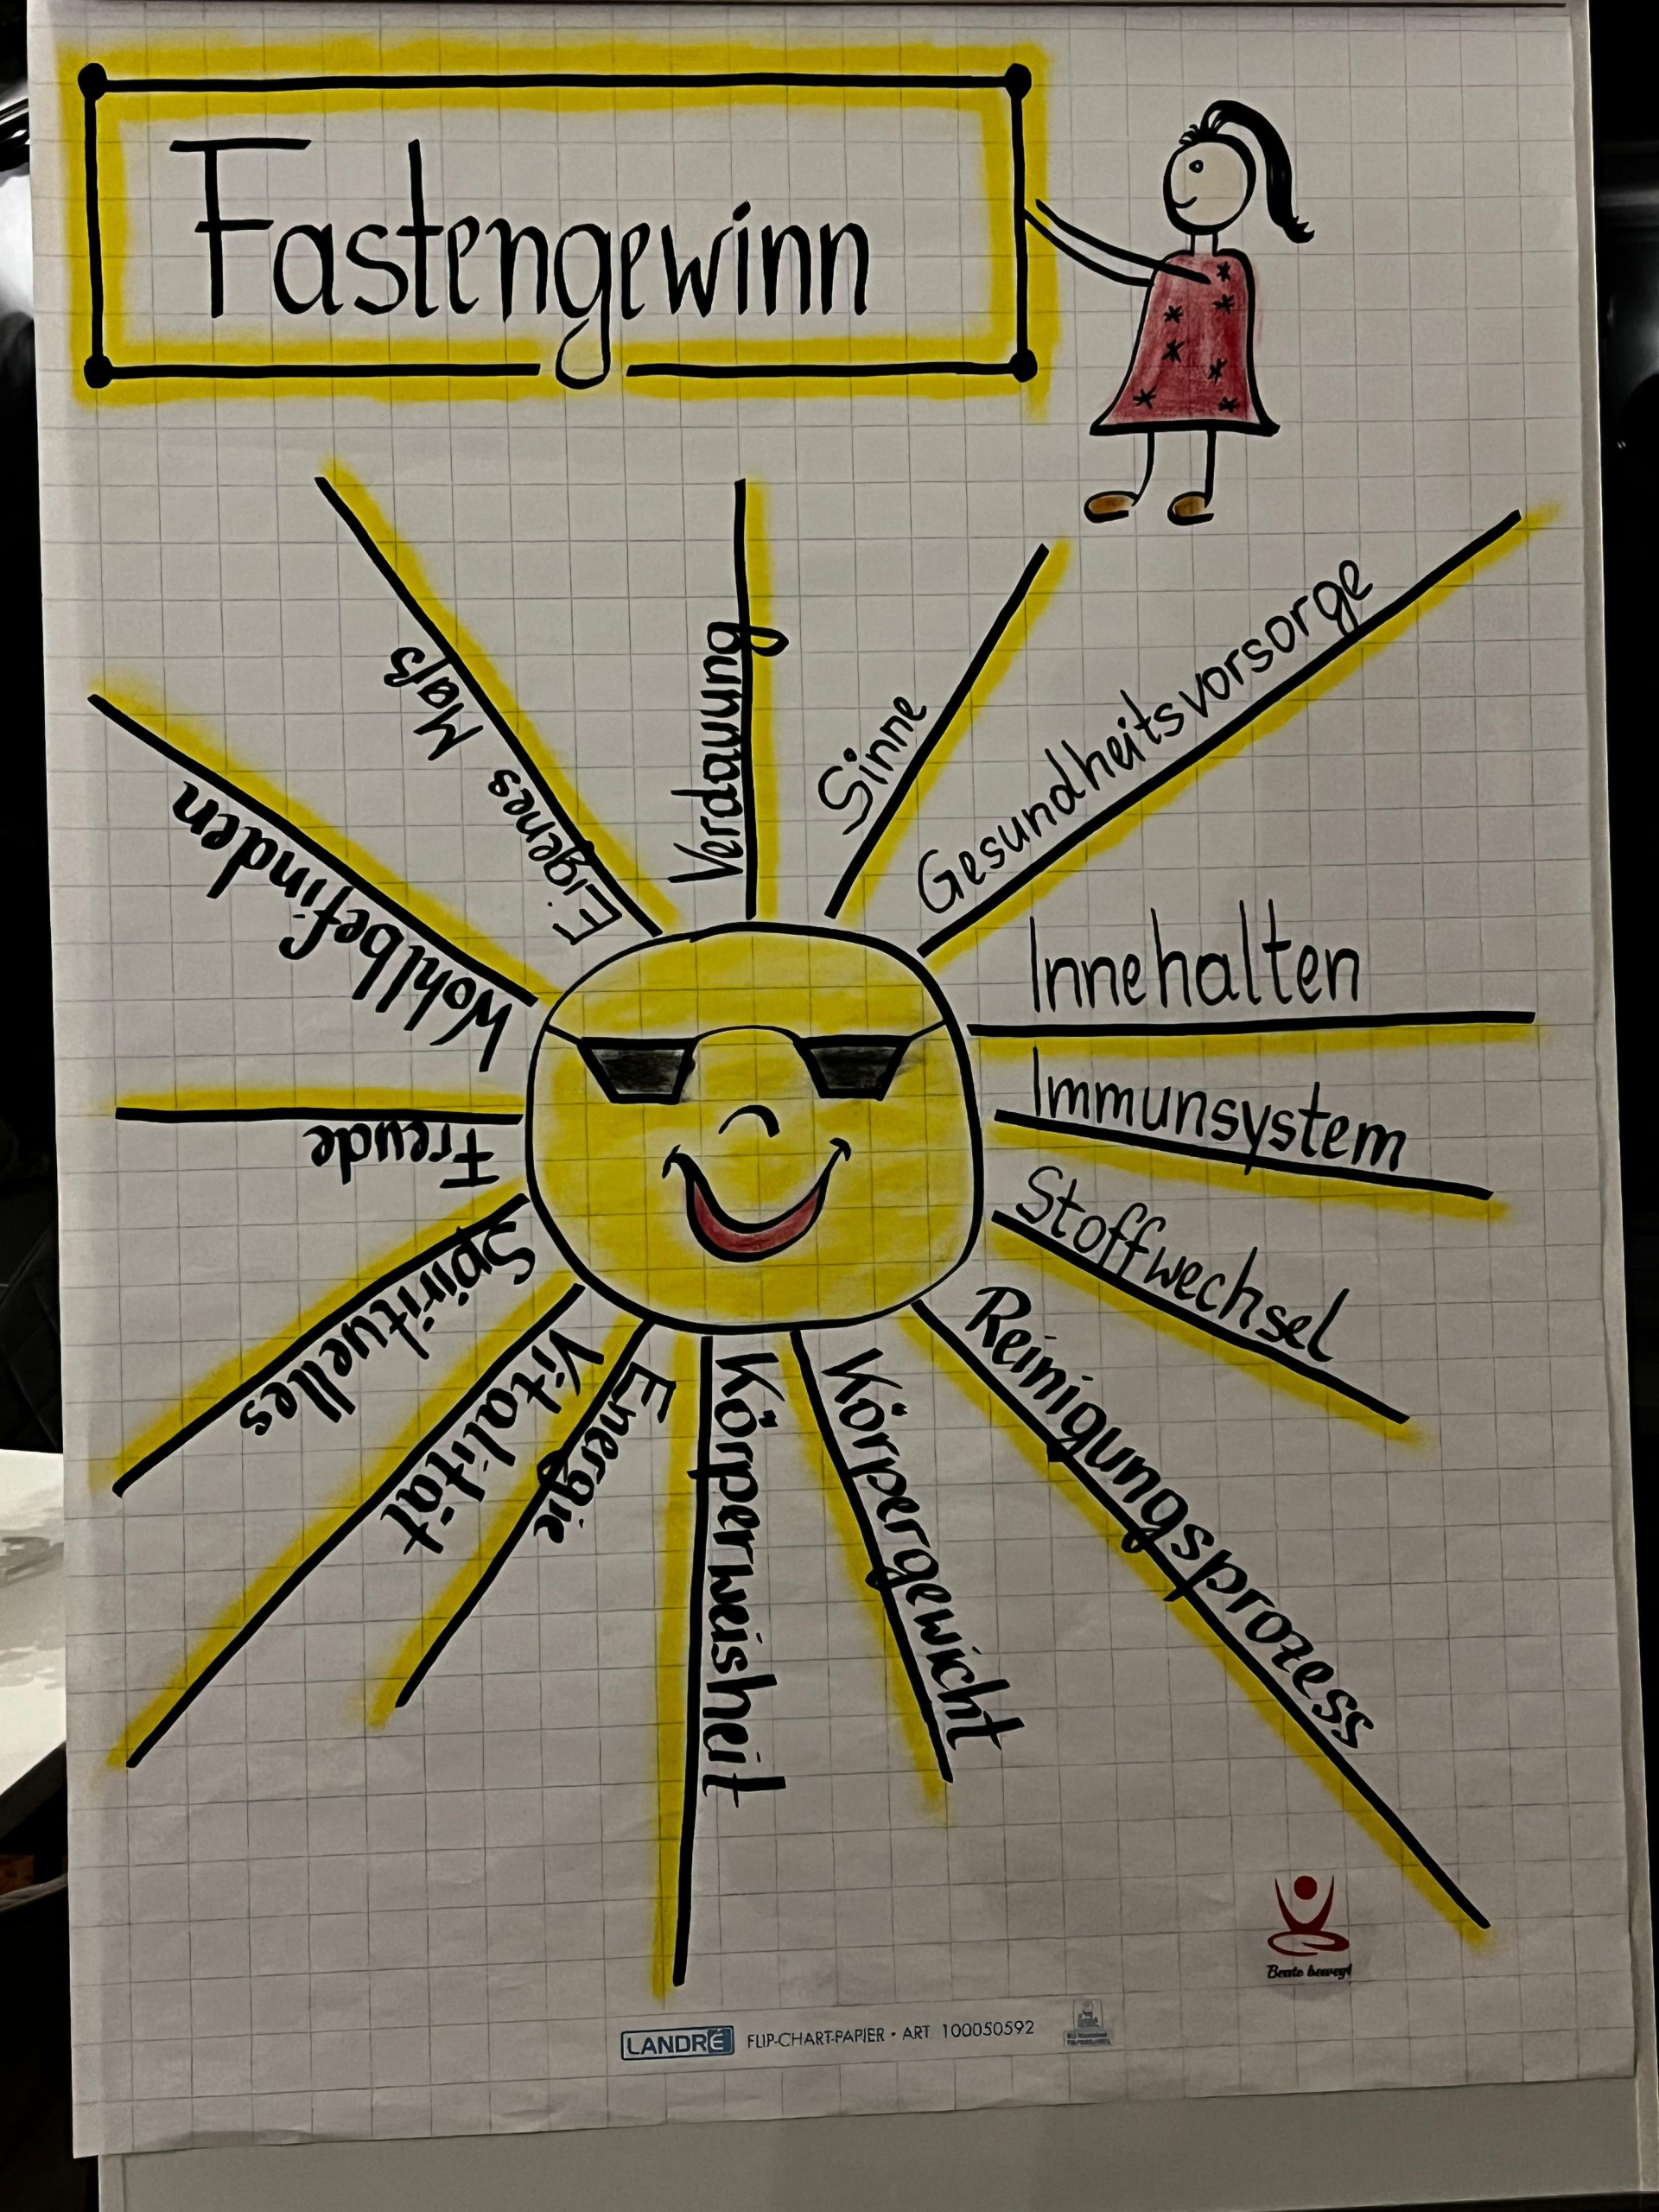 Fastengewinn
Eigenes Maß
Verdauung
Sinne
Gesundheitsvorsorge
Innehalten
Immunsystem
Stoffwechsel
Reinigungsprozess
Körpergewicht
Körperweisheit
Energie
Vitalität
Spirituelles
Freude
Wohlbefinden
Beate bewegt
LANDRÉ FLIP-CHART-PAPIER • ART. 100050592